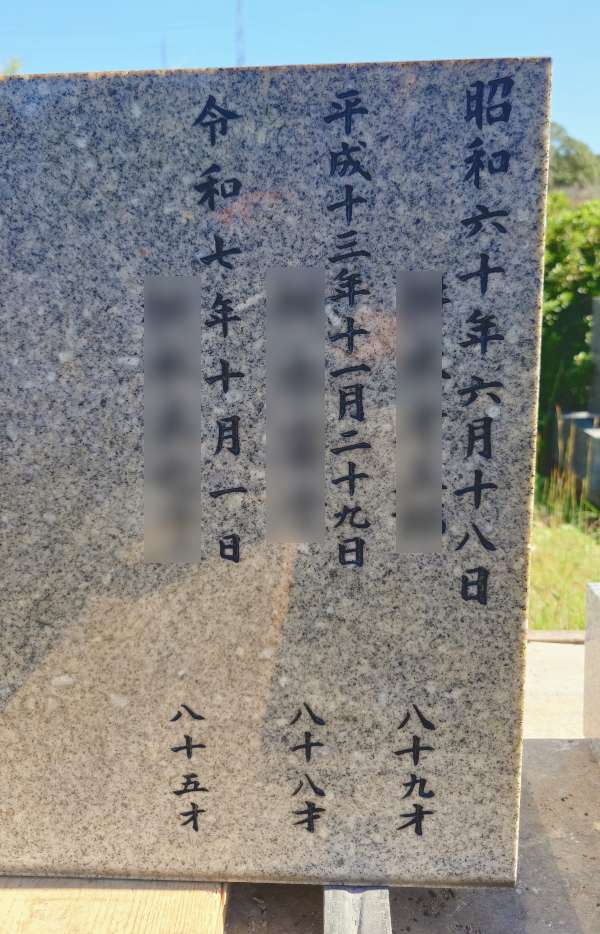 昭和六十年六月十八日
八十九才
平成十三年十一月二十九日
八十八才
令和七年十月一日
八十五才